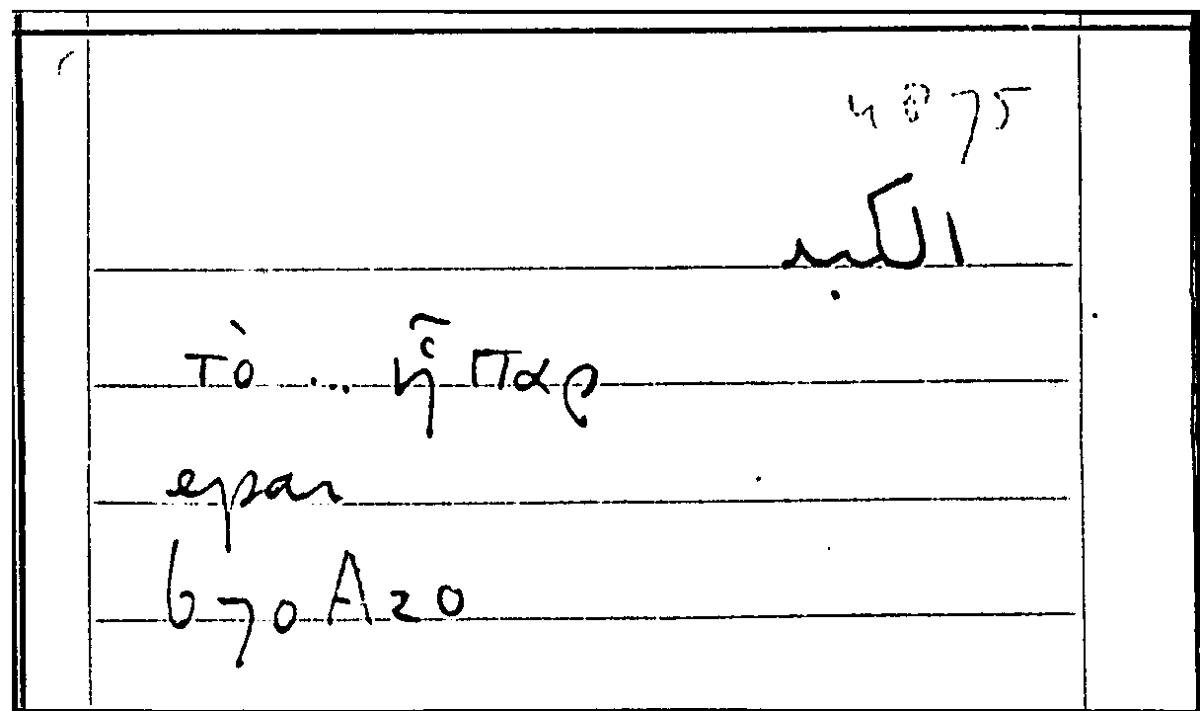 4875
الكبد
τὸ ... ἧπαρ
epar
670A20